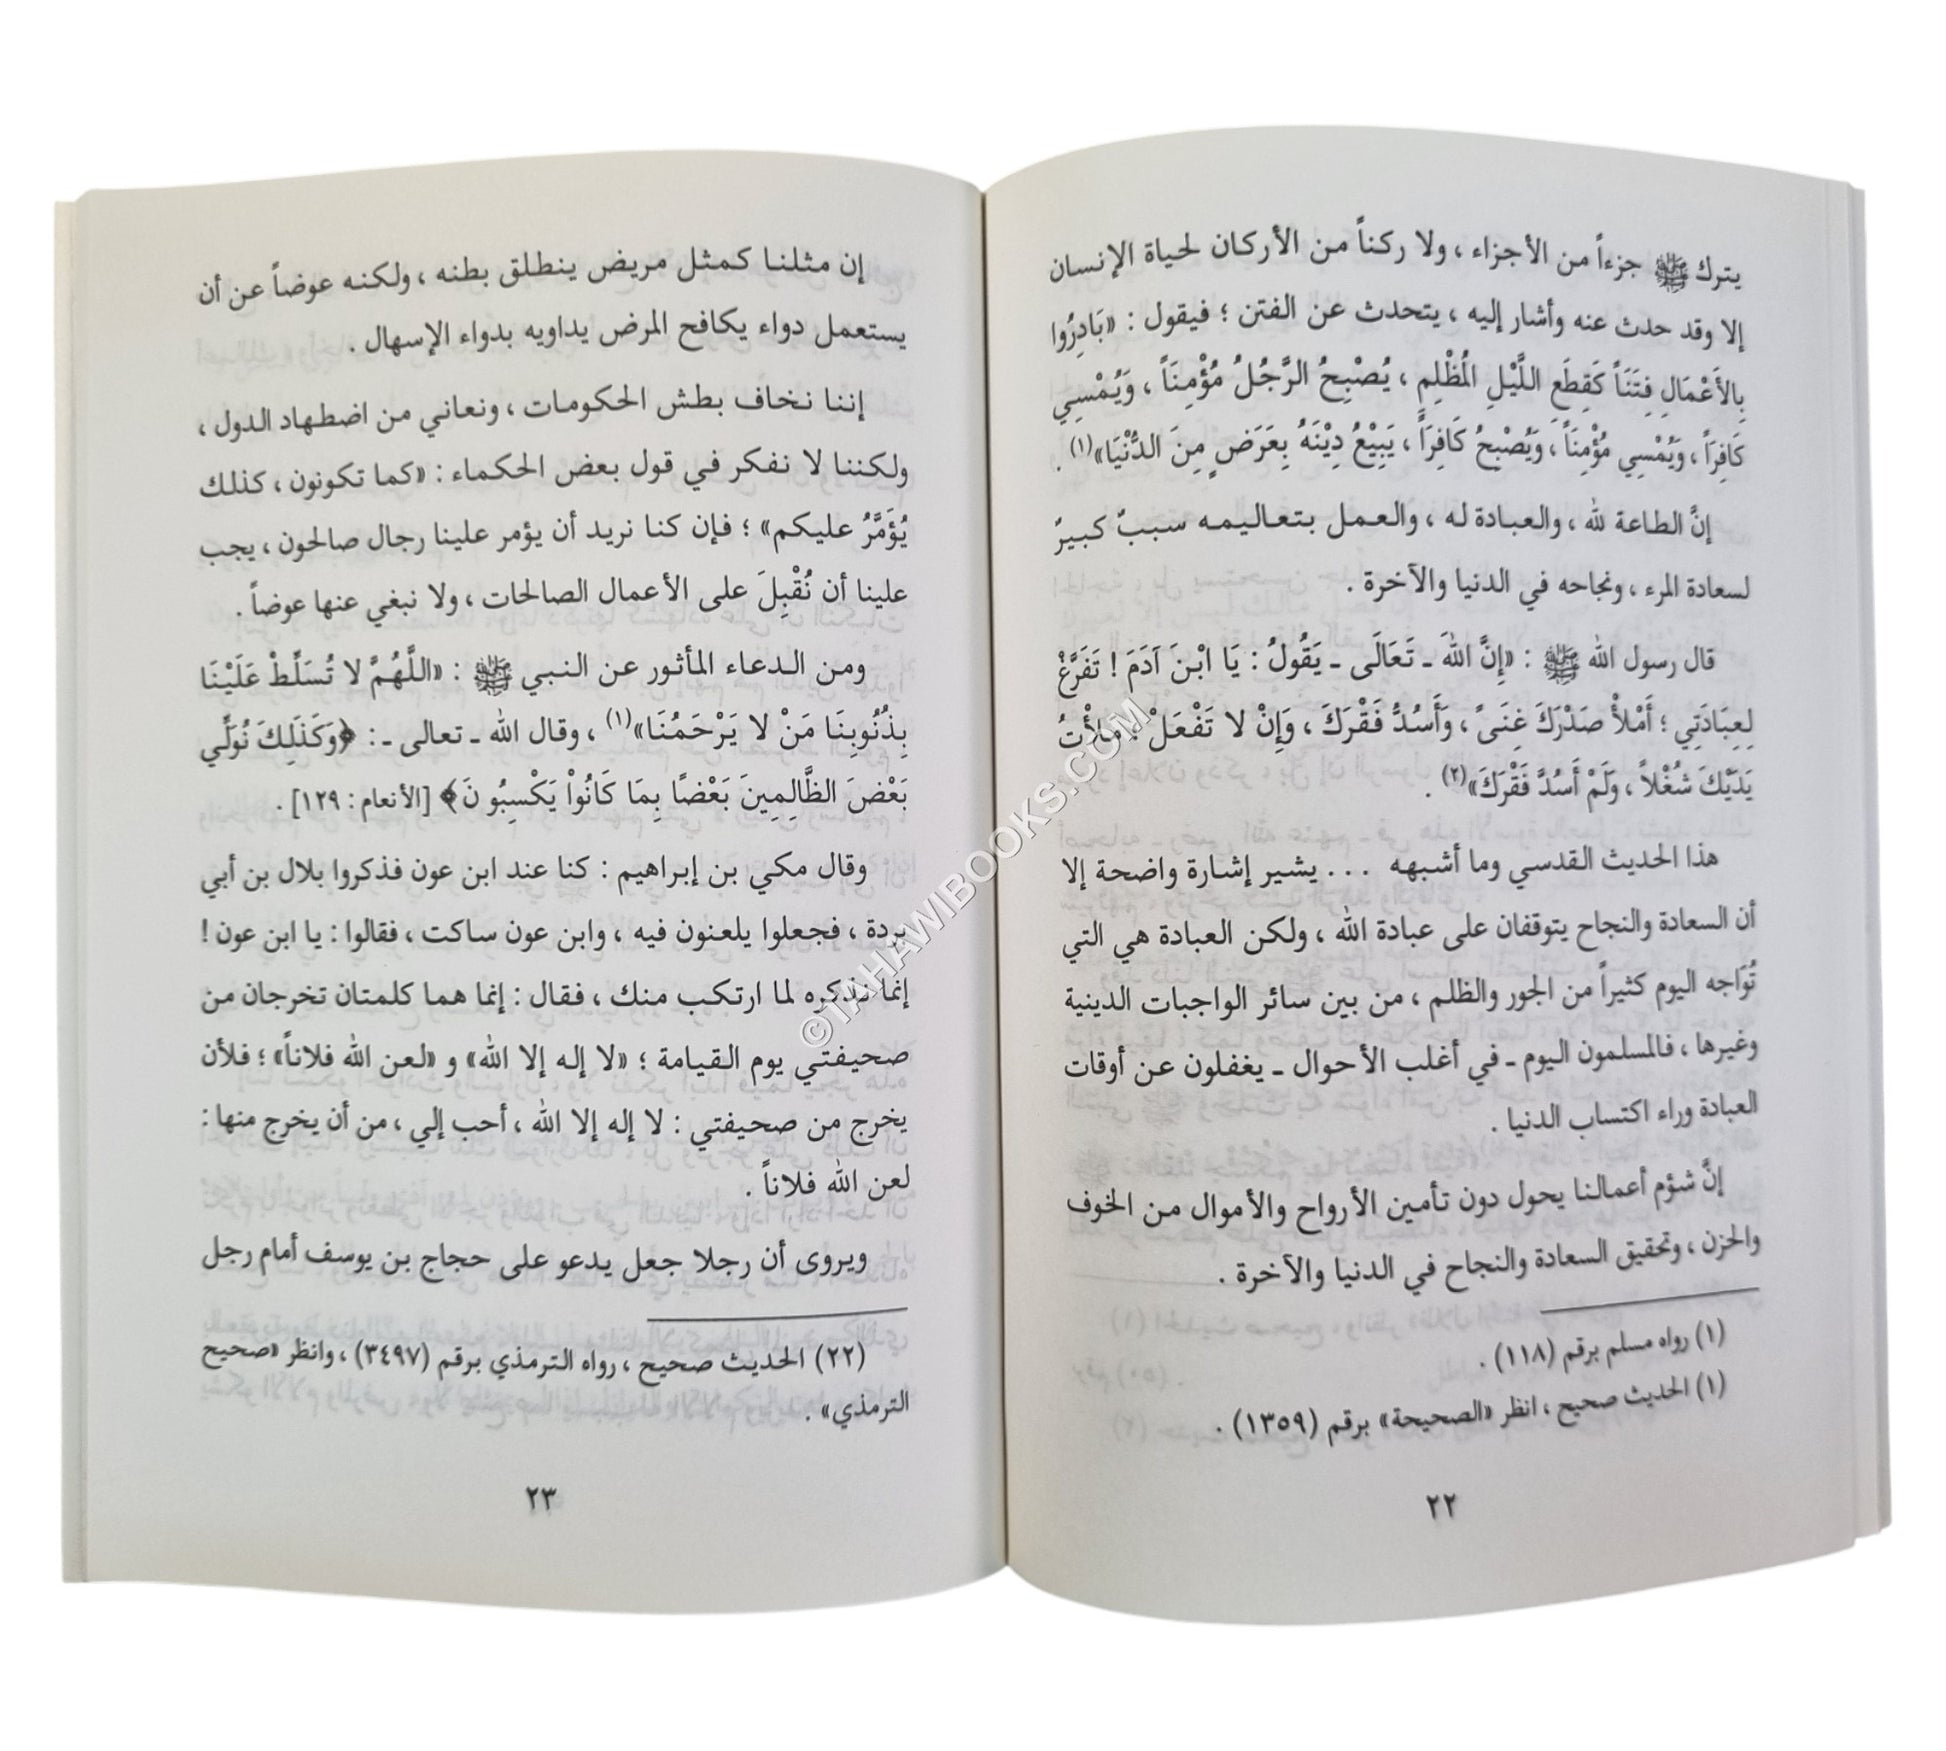 يترك ﷺ جزءاً من الأجزاء ، ولا ركناً من الأركان لحياة الإنسان
إلا وقد حدث عنه وأشار إليه ، يتحدث عن الفتن ؛ فيقول : «بَادِرُوا
بِالأَعْمَالِ فِتَنَاً كَقِطَعِ اللَّيْلِ المُظْلِمِ ، يُصْبِحُ الرَّجُلُ مُؤْمِنَاً ، وَيُمْسِي
كَافِرَاً ، وَيُمْسِي مُؤْمِنَاً ، وَيُصْبِحُ كَافِرَاً ، يَبِيْعُ دِيْنَهُ بِعَرَضٍ مِنَ الدُّنْيَا»(١) .
إنَّ الطاعة لله ، والعبادة له ، والعمل بتعاليمه سببٌ كبيرٌ
لسعادة المرء ، ونجاحه في الدنيا والآخرة .
قال رسول الله ﷺ : «إِنَّ اللهَ ـ تَعَالَى ـ يَقُولُ : يَا ابْنَ آدَمَ ! تَفَرَّغْ
لِعِبَادَتِي ؛ أَمْلأْ صَدْرَكَ غِنَىً ، وَأَسُدُّ فَقْرَكَ ، وَإِنْ لا تَفْعَلْ ؛ مَلأْتُ
يَدَيْكَ شُغْلاً ، وَلَمْ أَسُدَّ فَقْرَكَ»(٢) .
هذا الحديث القدسي وما أشبهه ... يشير إشارة واضحة إلا
أن السعادة والنجاح يتوقفان على عبادة الله ، ولكن العبادة هي التي
تُوَاجه اليوم كثيراً من الجور والظلم ، من بين سائر الواجبات الدينية
وغيرها ، فالمسلمون اليوم ـ في أغلب الأحوال ـ يغفلون عن أوقات
العبادة وراء اكتساب الدنيا .
إنَّ شؤم أعمالنا يحول دون تأمين الأرواح والأموال من الخوف
والحزن ، وتحقيق السعادة والنجاح في الدنيا والآخرة .
(١) رواه مسلم برقم (١١٨) .
(١) الحديث صحيح ، انظر «الصحيحة» برقم (١٣٥٩) .
٢٢
إن مثلنا كمثل مريض ينطلق بطنه ، ولكنه عوضاً عن أن
يستعمل دواء يكافح المرض يداويه بدواء الإسهال .
إننا نخاف بطش الحكومات ، ونعاني من اضطهاد الدول ،
ولكننا لا نفكر في قول بعض الحكماء : «كما تكونون ، كذلك
يُؤَمَّرُ عليكم» ؛ فإن كنا نريد أن يؤمر علينا رجال صالحون ، يجب
علينا أن نُقْبِلَ على الأعمال الصالحات ، ولا نبغي عنها عوضاً .
ومن الدعاء المأثور عن النبي ﷺ : «اللَّهُمَّ لا تُسَلِّطْ عَلَيْنَا
بِذُنُوبِنَا مَنْ لا يَرْحَمُنَا»(١) ، وقال الله ـ تعالى ـ : ﴿وَكَذَلِكَ نُوَلِّي
بَعْضَ الظَّالِمِينَ بَعْضًا بِمَا كَانُواْ يَكْسِبُونَ﴾ [الأنعام : ١٢٩] .
وقال مكي بن إبراهيم : كنا عند ابن عون فذكروا بلال بن أبي
بردة ، فجعلوا يلعنون فيه ، وابن عون ساكت ، فقالوا : يا ابن عون !
إنما نذكره لما ارتكب منك ، فقال : إنما هما كلمتان تخرجان من
صحيفتي يوم القيامة ؛ «لا إله إلا الله» و «لعن الله فلاناً» ؛ فلأن
يخرج من صحيفتي : لا إله إلا الله ، أحب إلي ، من أن يخرج منها :
لعن الله فلاناً .
ويروى أن رجلا جعل يدعو على حجاج بن يوسف أمام رجل
(٢٢) الحديث صحيح ، رواه الترمذي برقم (٣٤٩٧) ، وانظر «صحيح
الترمذي» .
٢٣
©TAHAWIBOOKS.COM